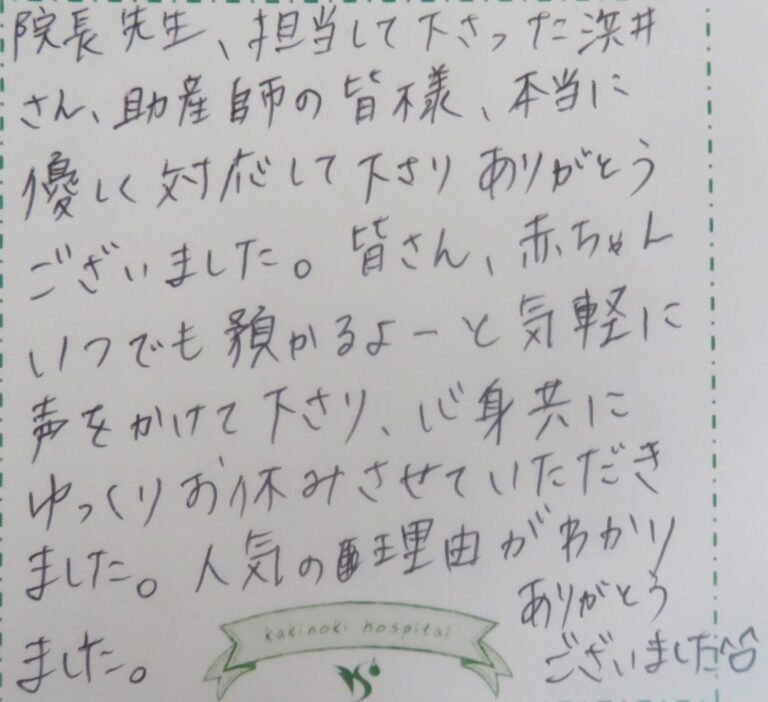 院長先生、担当して下さった浜井
さん、助産師の皆様、本当に
優しく対応して下さりありがとう
ございました。皆さん、赤ちゃん
いつでも預かるよーと気軽に
声をかけて下さり、心身共に
ゆっくりお休みさせていただき
ました。人気の理由がわかり
ました。
ありがとう
ございました^^
kakinoki hospital